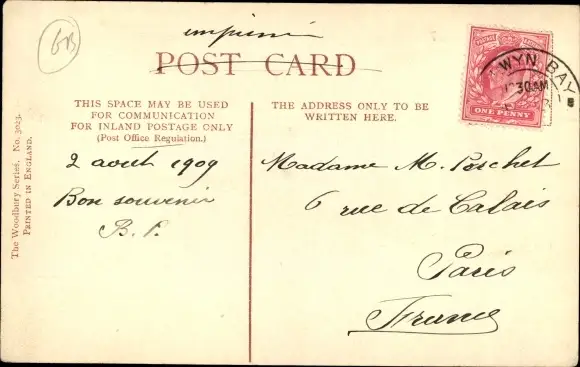 GB
imprimé
POST CARD
WYN BAY
30AM
ONE PENNY
THIS SPACE MAY BE USED
FOR COMMUNICATION
FOR INLAND POSTAGE ONLY
(Post Office Regulation.)
THE ADDRESS ONLY TO BE
WRITTEN HERE.
2 aout 1909
Bon souvenir
Madame M.
6 rue de Calais
Paris
France
The Woodbury Series. No. 3023.
PRINTED IN ENGLAND.